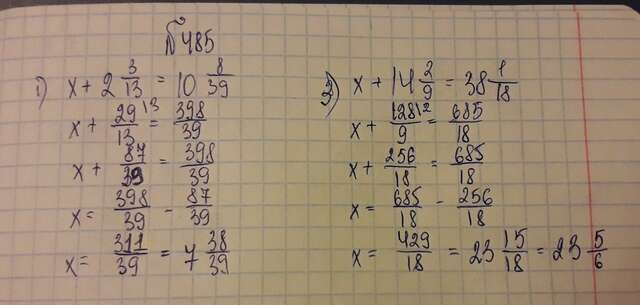 №485
1) x + 2 3/13 = 10 8/39
x + 29/13 ¹³ = 398/39
x + 87/39 = 398/39
x = 398/39 - 87/39
x = 311/39 = 7 38/39
2) x + 14 2/9 = 38 1/18
x + 128/9 ¹² = 685/18
x + 256/18 = 685/18
x = 685/18 - 256/18
x = 429/18 = 23 15/18 = 23 5/6